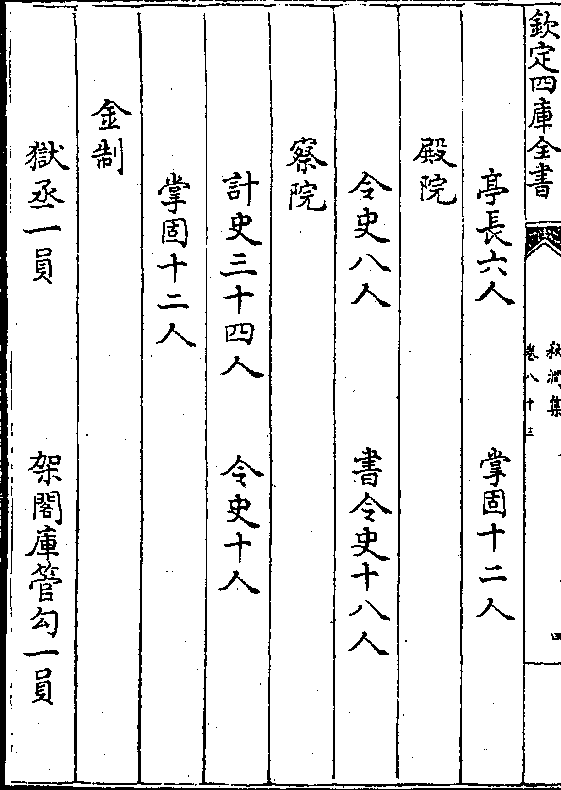 欽定四庫全書
秋澗集
卷八十三
四
亭長六人 掌固十二人
殿院
令史八人 書令史十八人
察院
計史三十四人 令史十人
掌固十二人
金制
獄丞一員 架閣庫管勾一員